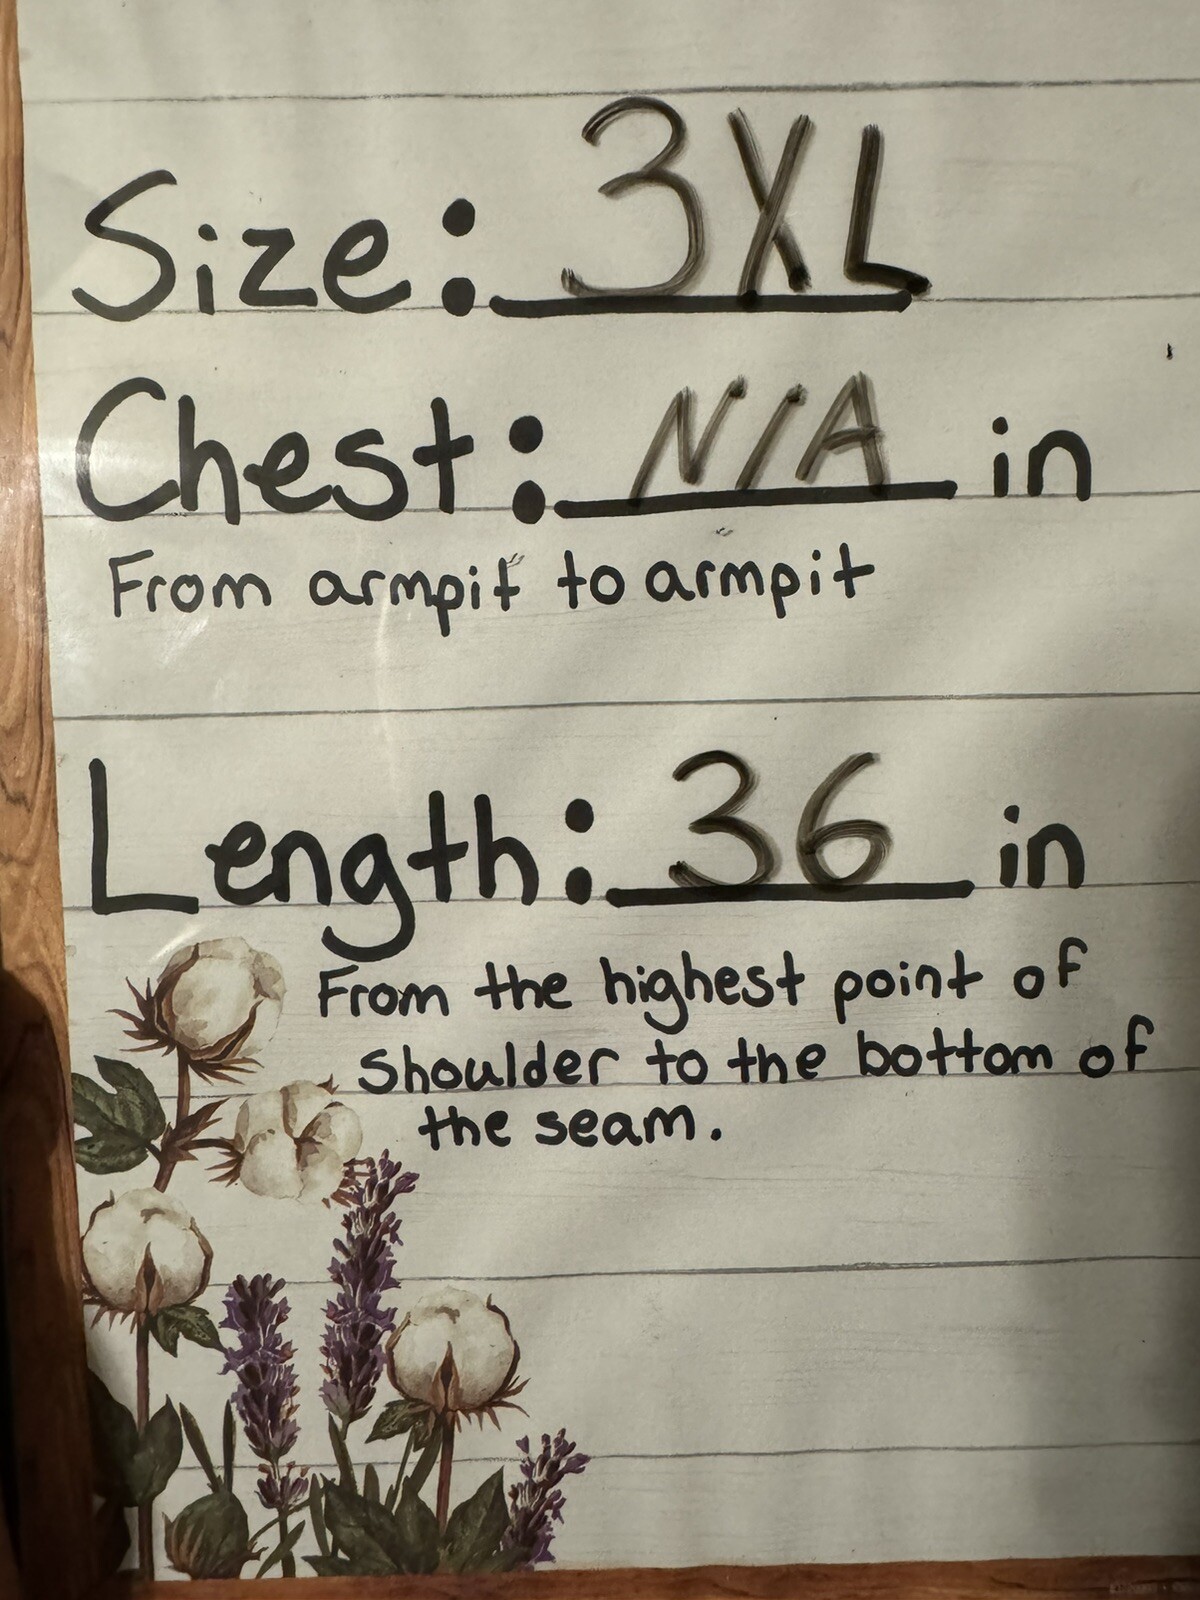 Size: 3XL
Chest: N/A in
From armpit to armpit
Length: 36 in
From the highest point of
shoulder to the bottom of
the seam.